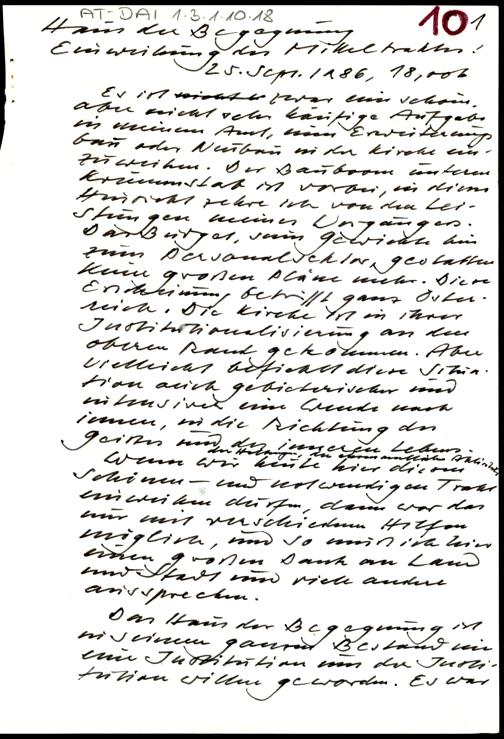 AT-DAI 1.3.1.10.18
10 1
Haus der Begegnung
Einweihung des Mitteltraktes!
25. Sept. 1986, 18,00h
Es ist nicht zwar eine schöne,
aber nicht sehr häufige Aufgabe
in meinem Amt, einen Erweiterungs
bau oder Neubau in der Kirche ein-
zuweihen. Der Bauboom unterm
Krummstab ist vorbei, in dieser
Hinsicht zehre ich von den Lei-
stungen meines Vorgängers.
Das Budget, sein Gewicht hin
zum Personalsektor, gestatten
keine großen Pläne mehr. Diese
Erscheinung betrifft ganz Öster-
reich. Die Kirche ist in ihrer
Institutionalisierung an den
oberen Rand gekommen. Aber
vielleicht befiehlt diese Situa-
tion auch gebieterischer und
intensiver eine Wende nach
innen, in die Richtung des
Geistes und des inneren Lebens.
der Haltungen, der ehrenamtlichen Aktivität
Wenn wir heute hier diesen
schönen – und notwendigen Trakt
einweihen dürfen, dann war das
nur mit verschiedenen Hilfen
möglich, und so muß ich hier
einen großen Dank an Land
und Stadt und viele andere
aussprechen.
Das Haus der Begegnung ist
in seinem ganzen Bestand wie
eine Institution um der Insti-
tution willen geworden. Es war